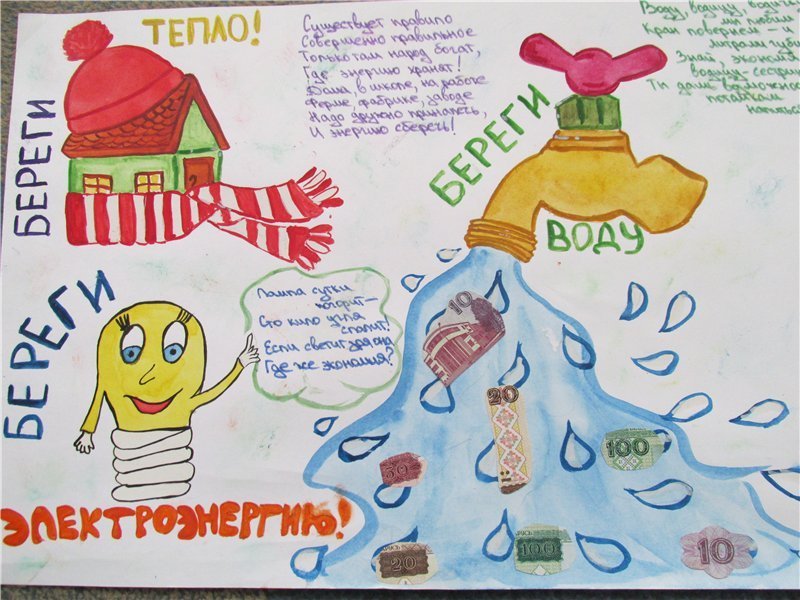 БЕРЕГИ
ТЕПЛО!
Существует правило
Совершенно правильное
Только там народ богат,
Где энергию хранят!
Дома, в школе, на работе
Ферме, фабрике, заводе
Надо дружно приналечь,
И энергию сберечь!
БЕРЕГИ
ВОДУ
Воду, водицу, водич
мы любим
Кран повернём - и
литрами губи
Знай, экономя
водицу-сестриц
Ты дашь возможнос
потомкам
БЕРЕГИ
ЭЛЕКТРОЭНЕРГИЮ!
Лампа сутки
погорит—
Сто кило угля
спалит!
Если светит зря она
Где же экономия?
10
20
50
100
20
100
10